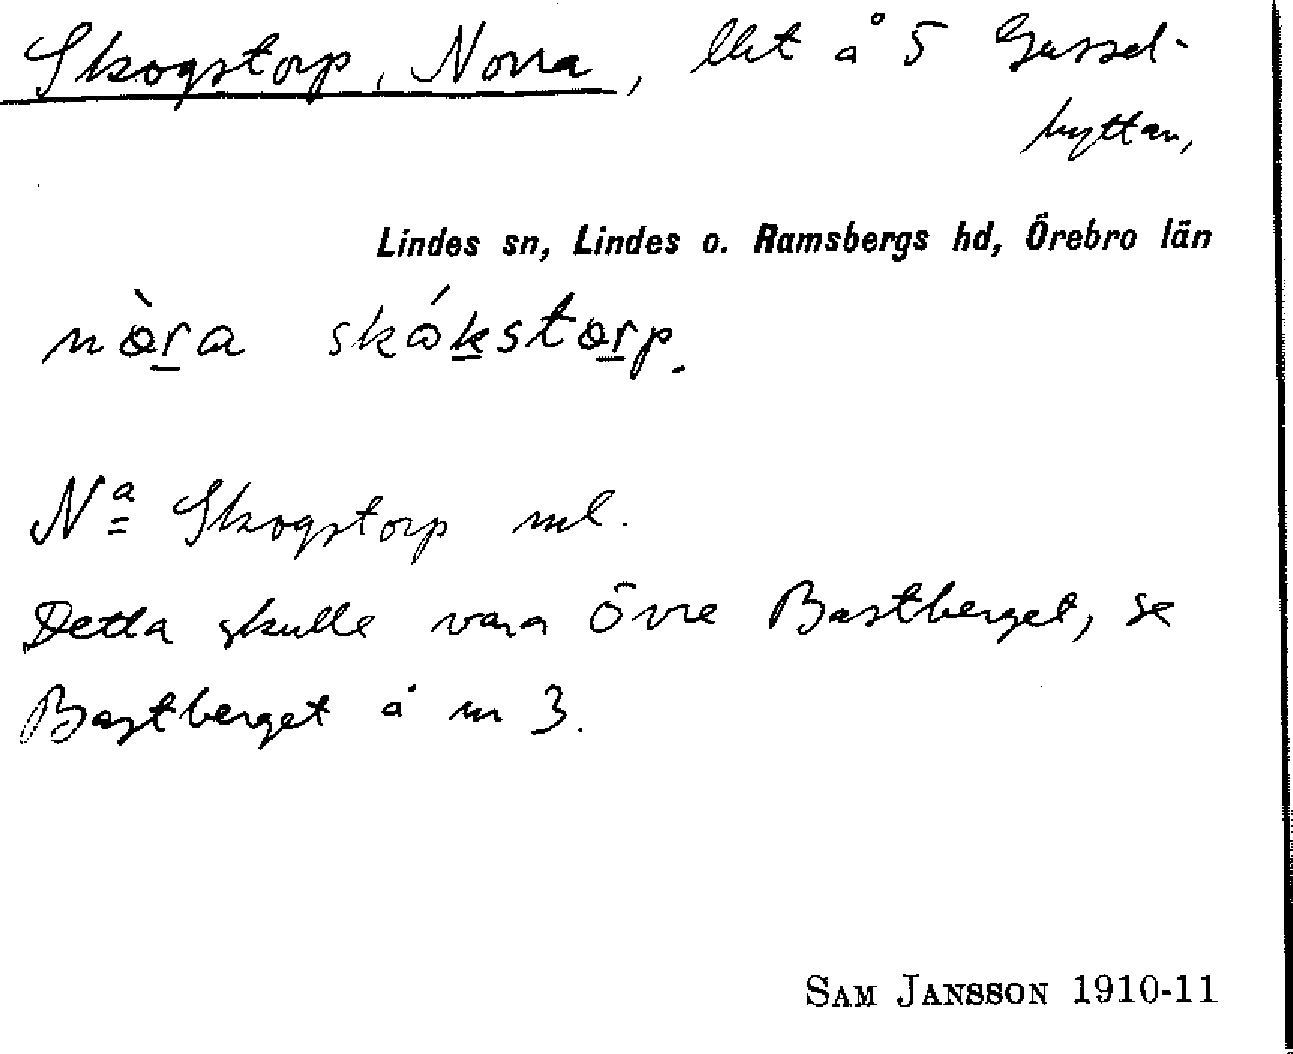 Skogstorp, Norra, lht å 5 Gussel-
hyttan,
Lindes sn, Lindes o. Ramsbergs hd, Örebro län
nòra skókstorp.
Nª Skogstorp ml.
Detta skulle vara Övre Bastberget, se
Bastberget å nr 3.
SAM JANSSON 1910-11